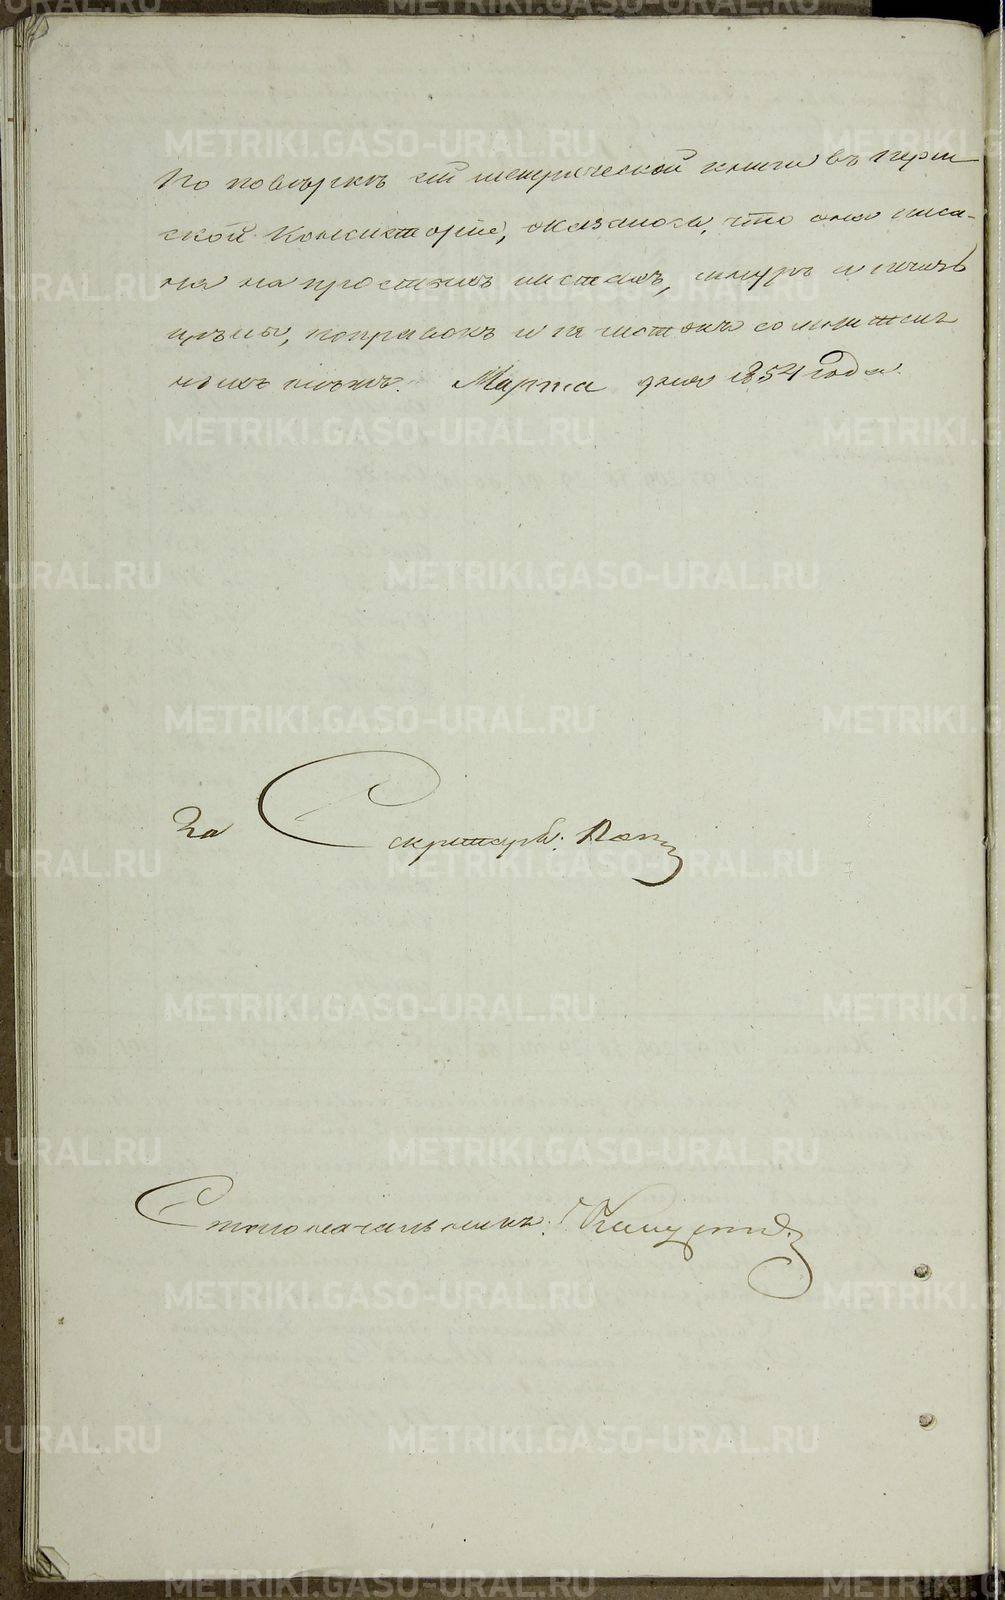 По повѣркѣ сей метрической книги въ Перм
ской Консисторіи, оказалось, что она писа-
на на простыхъ листахъ, шнуръ и печать
цѣлы, поправокъ и по чистокъ сомнитель
ныхъ нѣтъ. Марта дня 1854 года.
За Секретарь
Столоначальникъ
METRIKI.GASO-URAL.RU